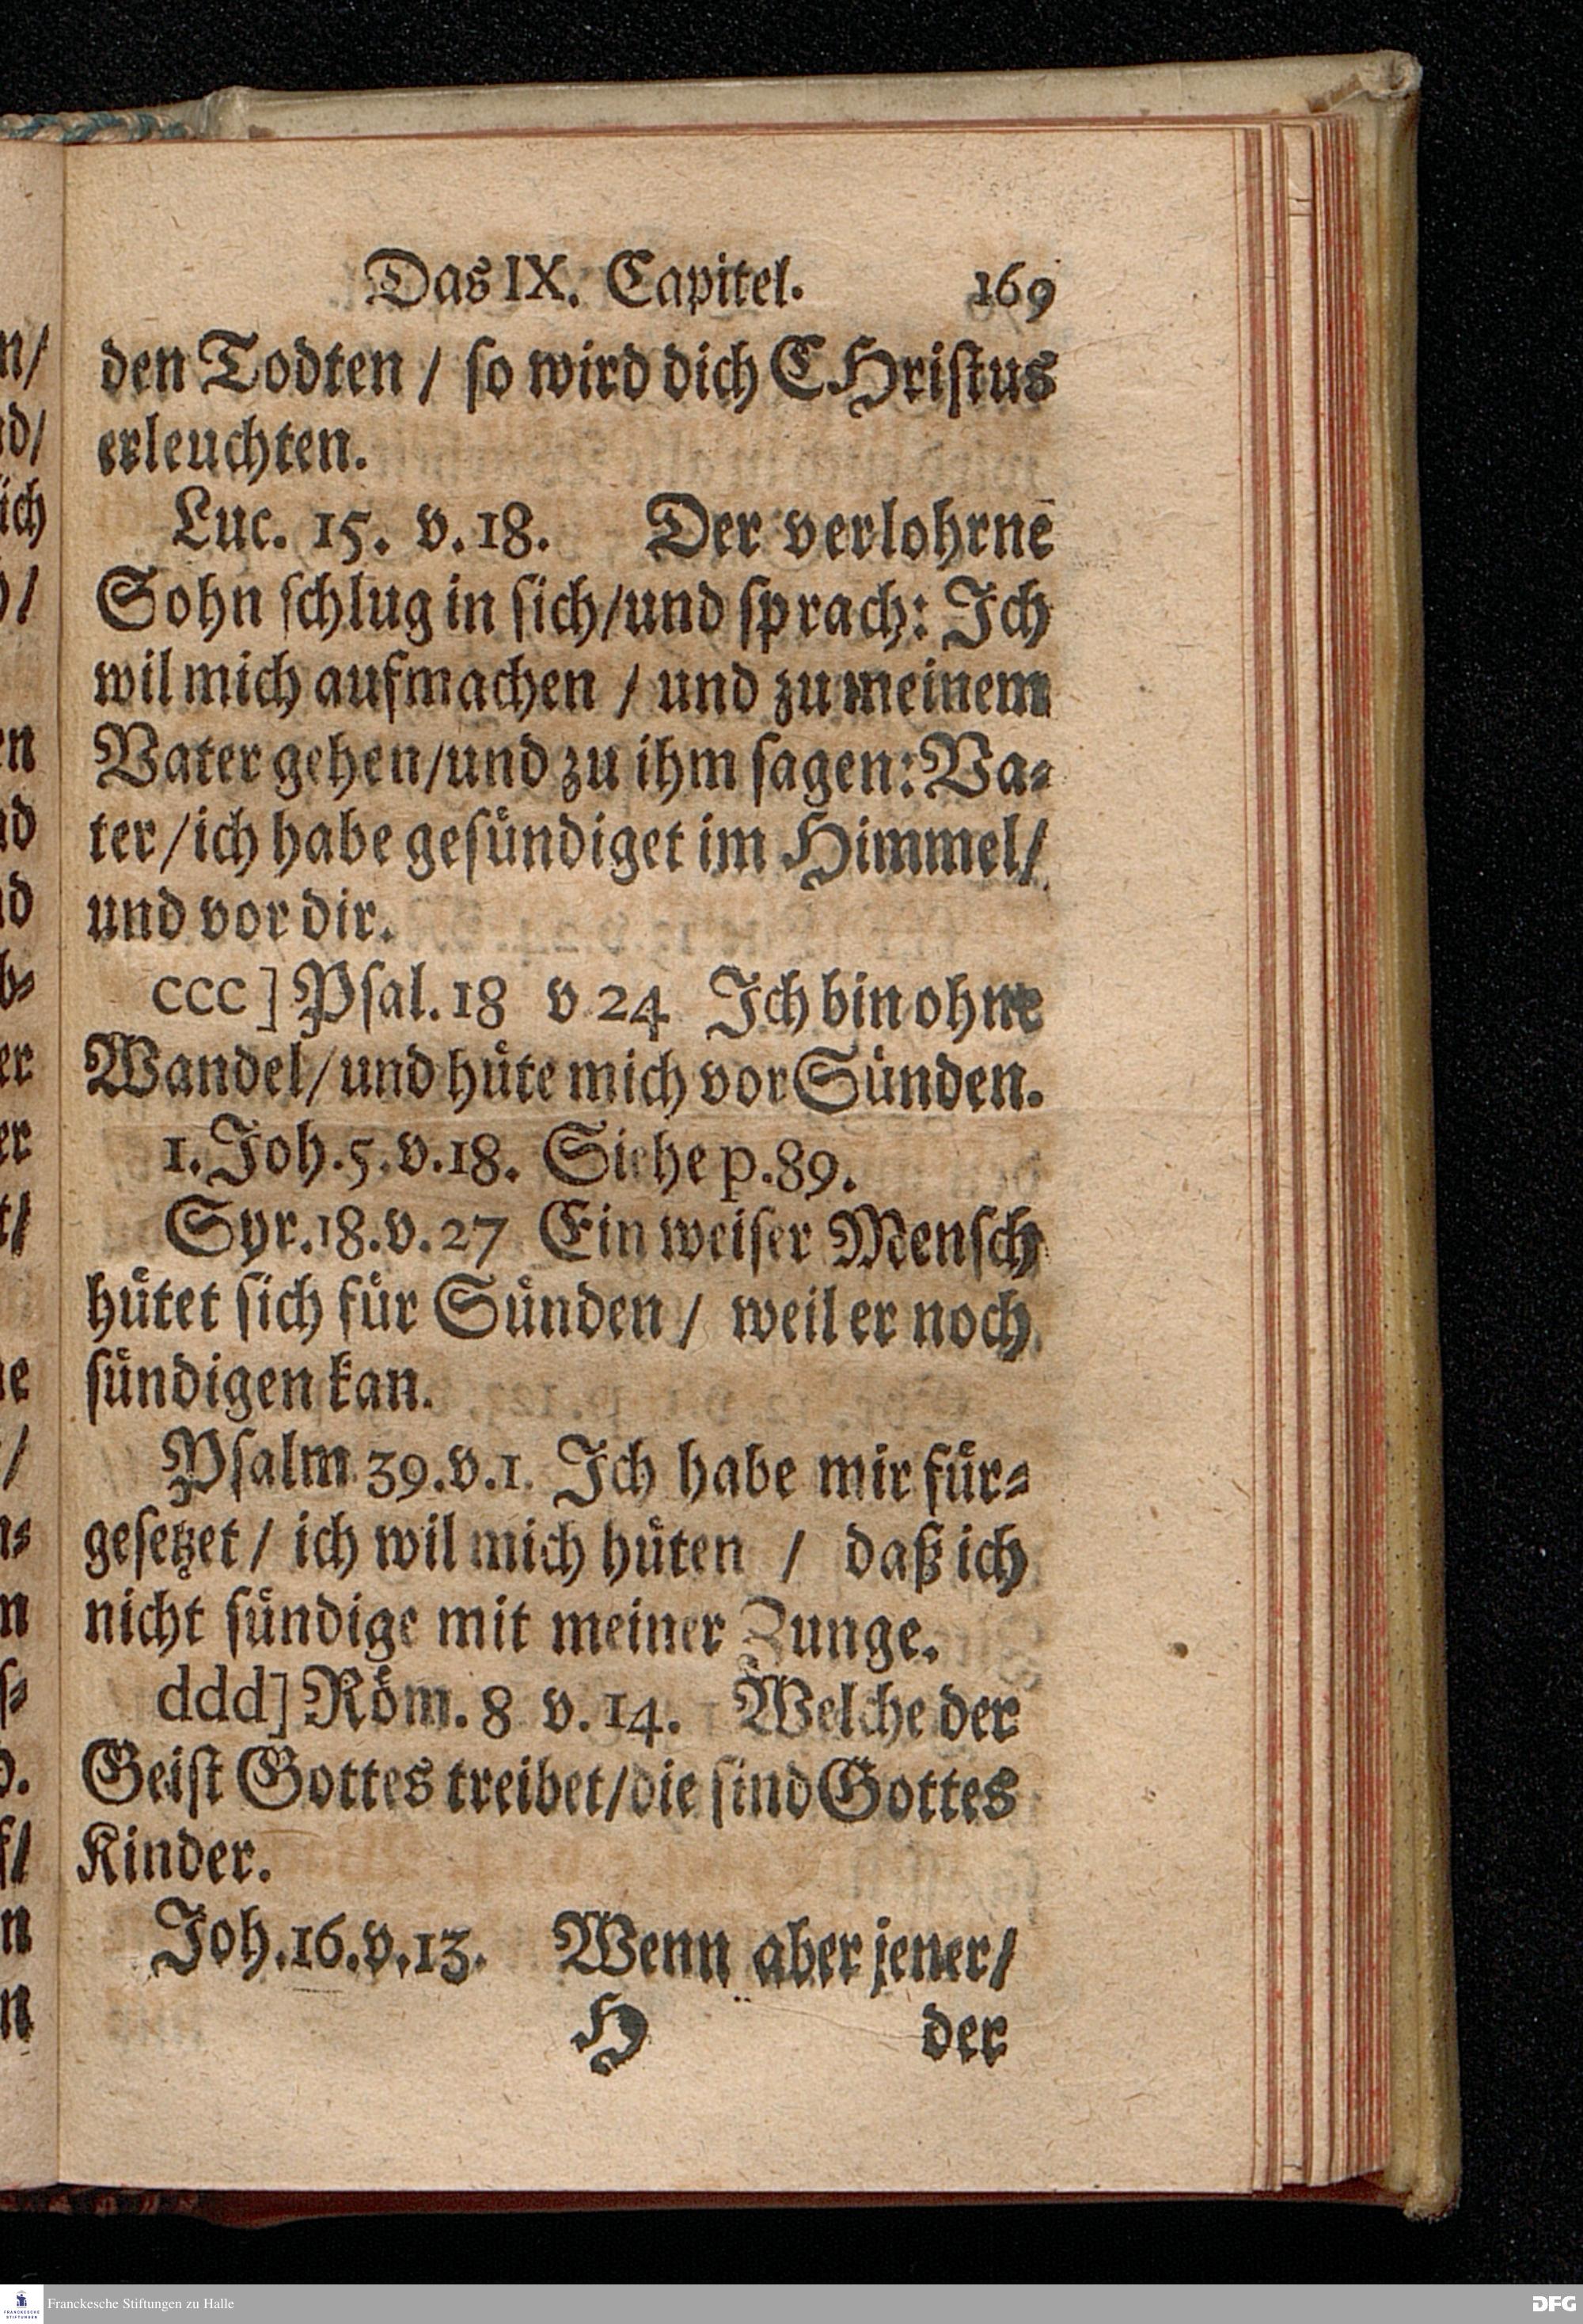 Das IX. Capitel. 169
den Todten / so wird dich CHristus
erleuchten.
Luc. 15. v. 18. Der verlohrne
Sohn schlug in sich/und sprach: Ich
wil mich aufmachen / und zu meinem
Vater gehen/und zu ihm sagen: Va-
ter/ich habe gesündiget im Himmel/
und vor dir.
ccc] Psal. 18 v 24 Ich bin ohne
Wandel/und hüte mich vor Sünden.
1. Joh. 5. v. 18. Siehe p. 89.
Syr. 18. v. 27 Ein weiser Mensch
hütet sich für Sünden / weil er noch
sündigen kan.
Psalm 39. v. 1. Ich habe mir für-
gesetzet / ich wil mich hüten / daß ich
nicht sündige mit meiner Zunge.
ddd] Röm. 8 v. 14. Welche der
Geist Gottes treibet/die sind Gottes
Kinder.
Joh. 16. v. 13. Wenn aber jener/
H der
Franckesche Stiftungen zu Halle
DFG